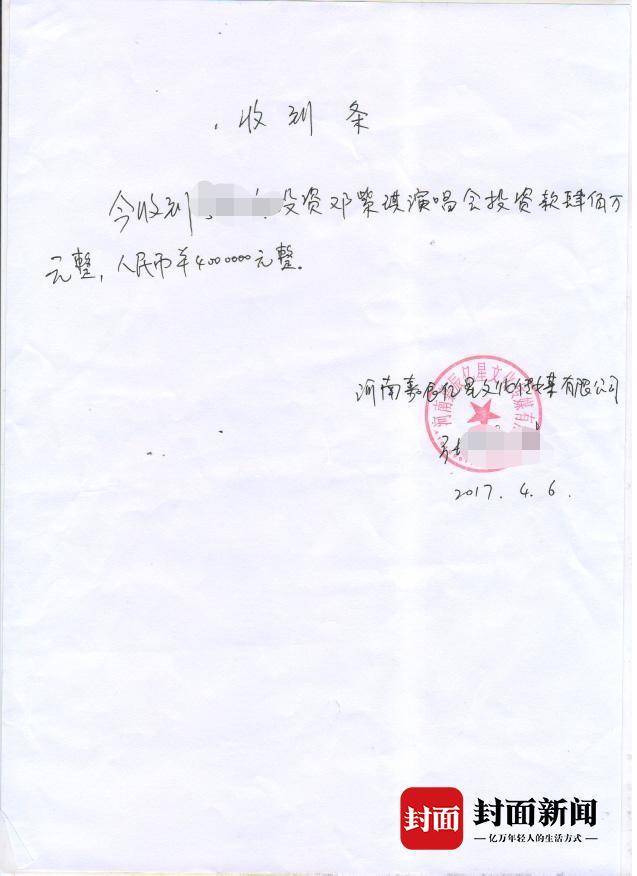 收到条
今收到投资邓紫琪演唱会投资款肆佰万
元整，人民币￥4000000元整。
河南嘉辰亿星文化传媒有限公司
2017.4.6.
封面 封面新闻
亿万年轻人的生活方式